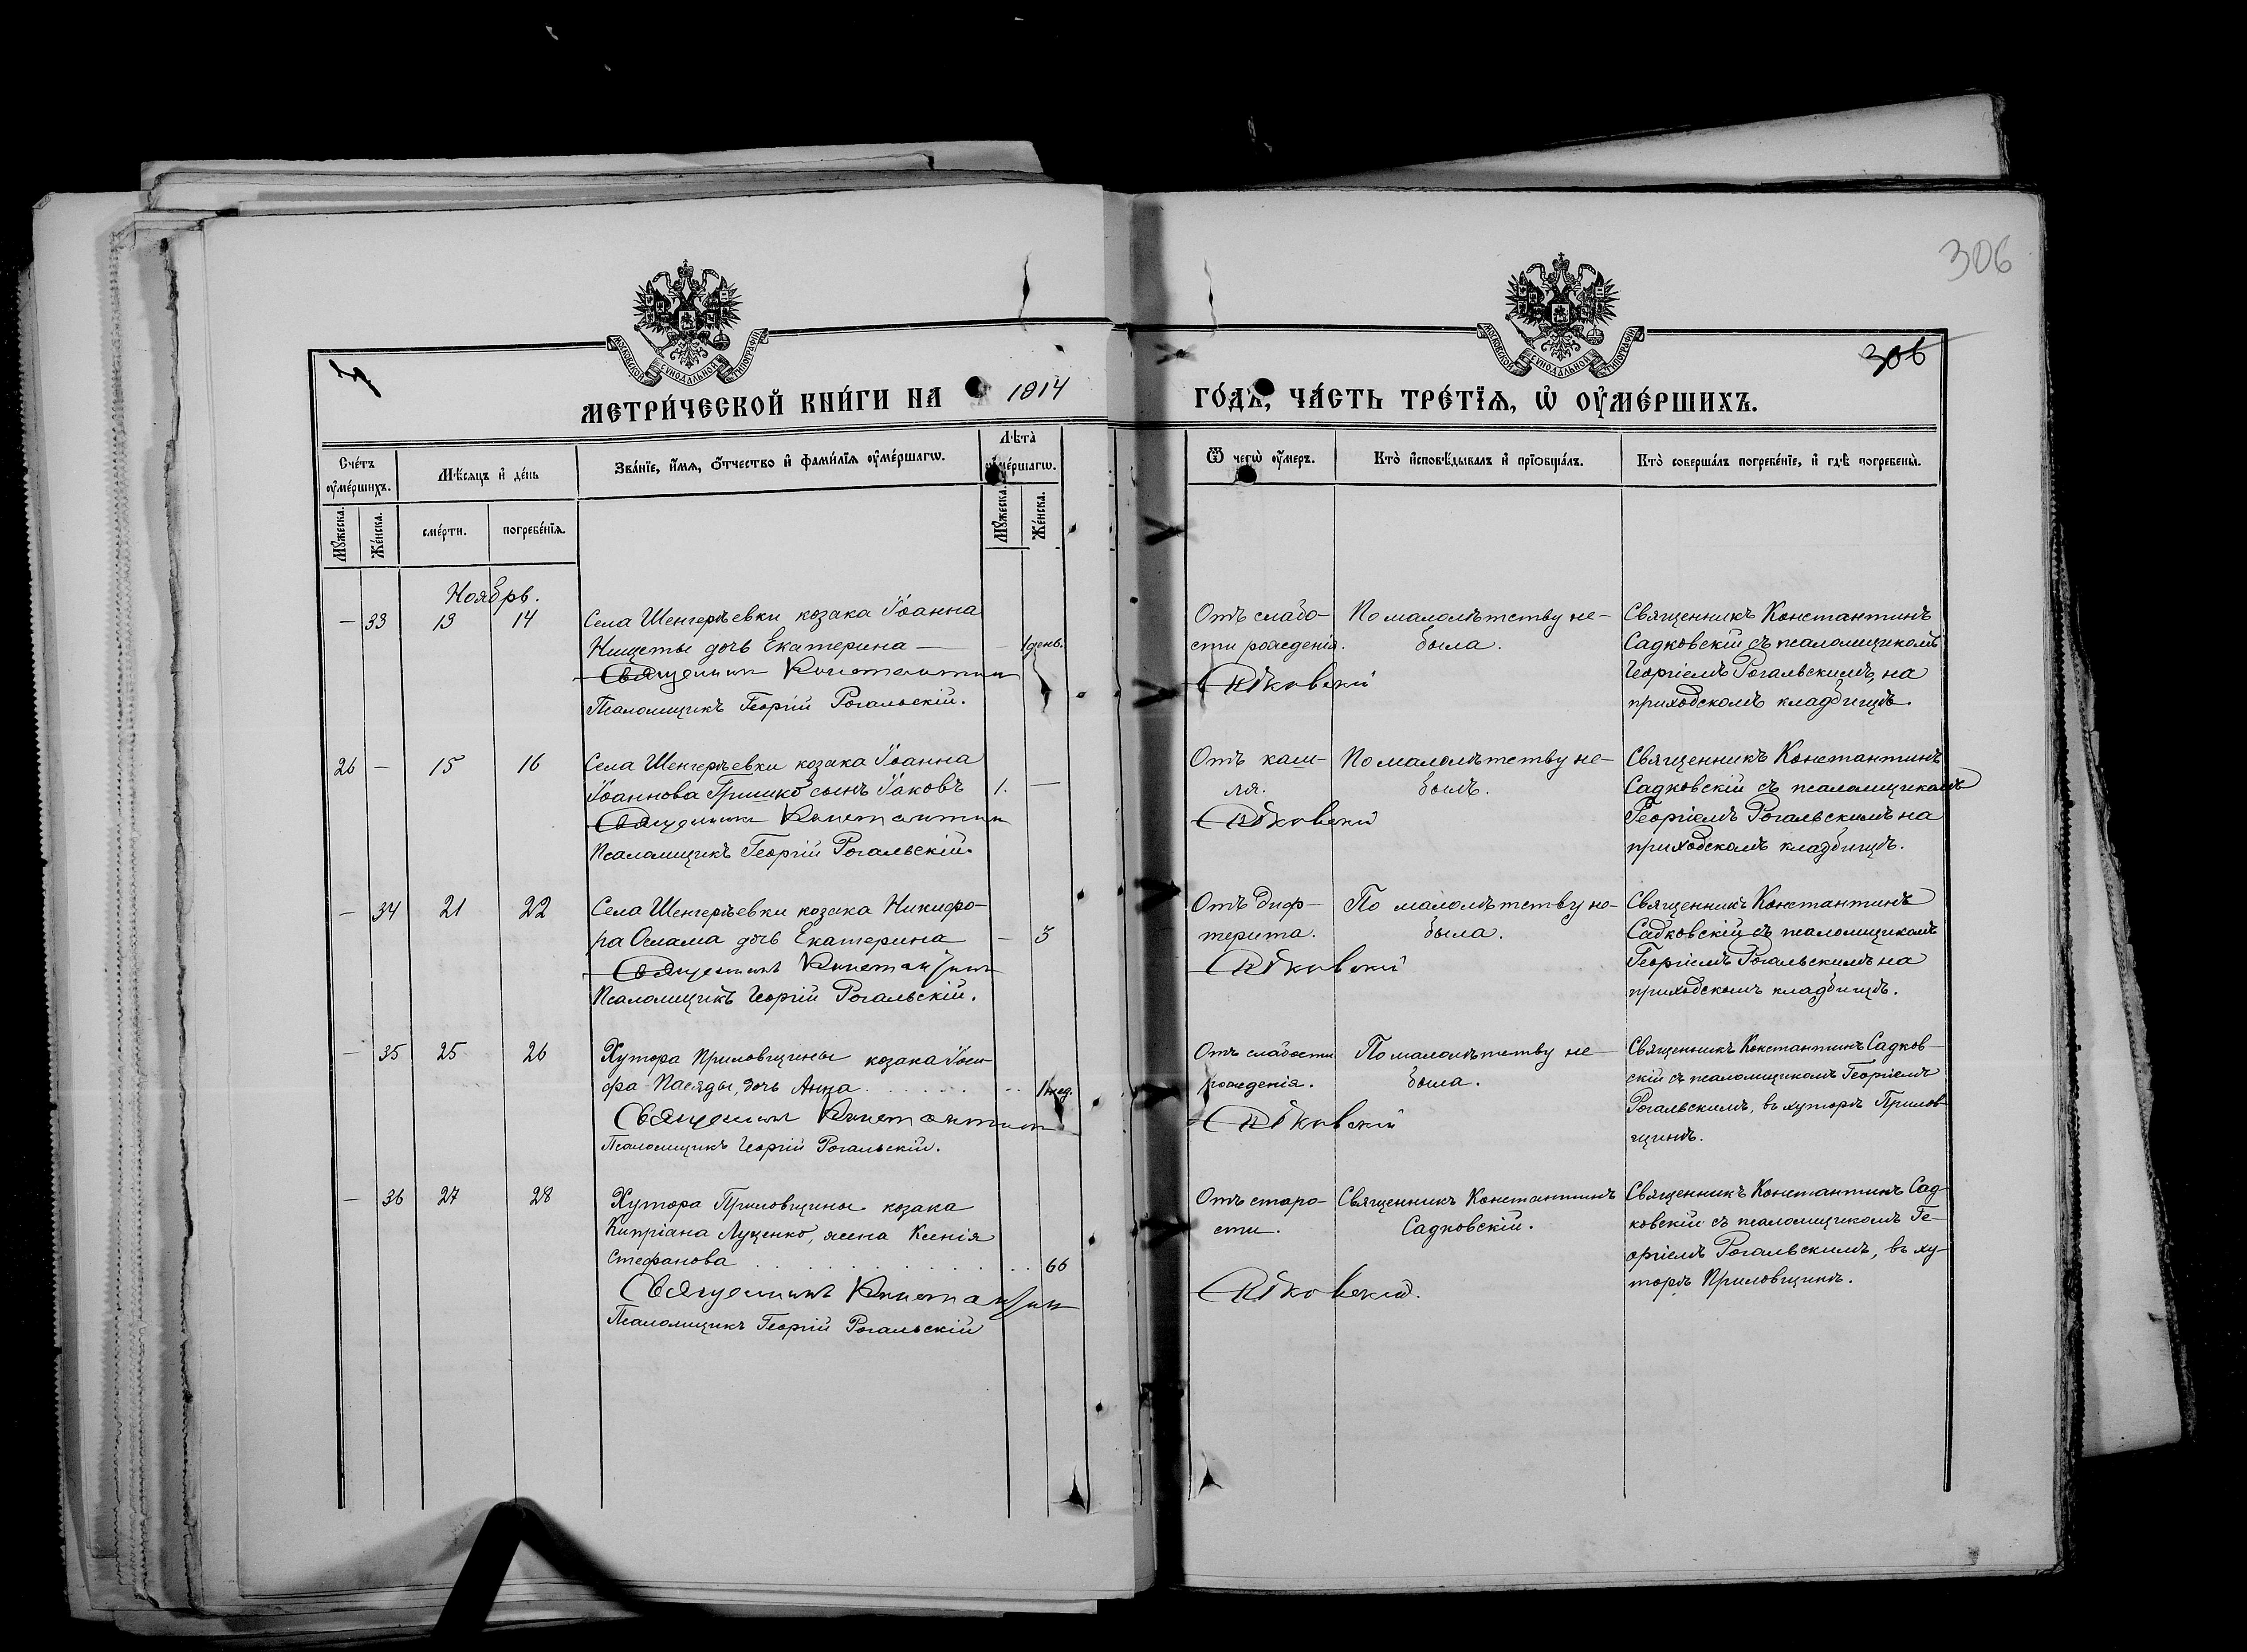 306
306
МОСКОВСКОЙ СѴНОДАЛЬНОЙ ТИПОГРАФІИ
МОСКОВСКОЙ СѴНОДАЛЬНОЙ ТИПОГРАФІИ
МЕТРИ́ЧЕСКОЙ КНИ́ГИ НА 1914 ГО́ДЪ, ЧА́СТЬ ТРЕ́ТЇѦ, Ѡ҆ ОУ҆МЕ́РШИХЪ.
Сче́тъ оу҆ме́ршихъ.
Мꙋ́жеска.
Же́нска.
Мѣ́сяцъ и҆ де́нь
сме́рти.
погребе́нїѧ.
Зва́нїе, и҆́мѧ, ѻ҆́тчество и҆ фами́лїѧ оу҆ме́ршагѡ.
Лѣта̀ оу҆ме́ршагѡ.
Мꙋ́жеска.
Же́нска.
Ѿ чегѡ̀ оу҆́меръ.
Кто̀ и҆сповѣ́дывалъ и҆ прїѡбща́лъ.
Кто̀ соверша́лъ погребе́нїе, и҆ гдѣ̀ погребены̀.
Ноябрь.
— 33 13 14 Села Шенгерѣевки козака Іоанна
Нищеты дочь Екатерина — — 1 день.
Священникъ Константинъ
Псаломщикъ Георгій Рогальскій.
Отъ слабо-
сти рожденія.
Садковскій
По малолѣтству не-
была.
Священникъ Константинъ
Садковскій съ псаломщикомъ
Георгіемъ Рогальскимъ, на
приходскомъ кладбищѣ.
26 — 15 16 Села Шенгерѣевки козака Іоанна
Іоаннова Гришко сынъ Іаковъ 1. —
Священникъ Константинъ
Псаломщикъ Георгій Рогальскій.
Отъ каш-
ля.
Садковскій
По малолѣтству не-
былъ.
Священникъ Константинъ
Садковскій съ псаломщикомъ
Георгіемъ Рогальскимъ на
приходскомъ кладбищѣ.
— 34 21 22 Села Шенгерѣевки козака Никифо-
ра Ослама дочь Екатерина — 3
Священникъ Константинъ
Псаломщикъ Георгій Рогальскій.
Отъ диф-
терита.
Садковскій
По малолѣтству не-
была.
Священникъ Константинъ
Садковскій съ псаломщикомъ
Георгіемъ Рогальскимъ на
приходскомъ кладбищѣ.
— 35 25 26 Хутора Приловщины козака Іоси-
фа Пасяды, дочь Анна . . . . . . . . 1 нед.
Священникъ Константинъ
Псаломщикъ Георгій Рогальскій.
Отъ слабости
рожденія.
Садковскій
По малолѣтству не-
была.
Священникъ Константинъ Садков-
скій съ псаломщикомъ Георгіемъ
Рогальскимъ, въ хуторѣ Прилов-
щинѣ.
— 36 27 28 Хутора Приловщины козака
Кипріана Луценко, жена Ксенія
Стефанова . . . . . . . . . . . . 66
Священникъ Константинъ
Псаломщикъ Георгій Рогальскій
Отъ старо-
сти.
Садковскій.
Священникъ Константинъ
Садковскій.
Священникъ Константинъ Сад-
ковскій съ псаломщикомъ Ге-
оргіемъ Рогальскимъ, въ ху-
торѣ Приловщинѣ.